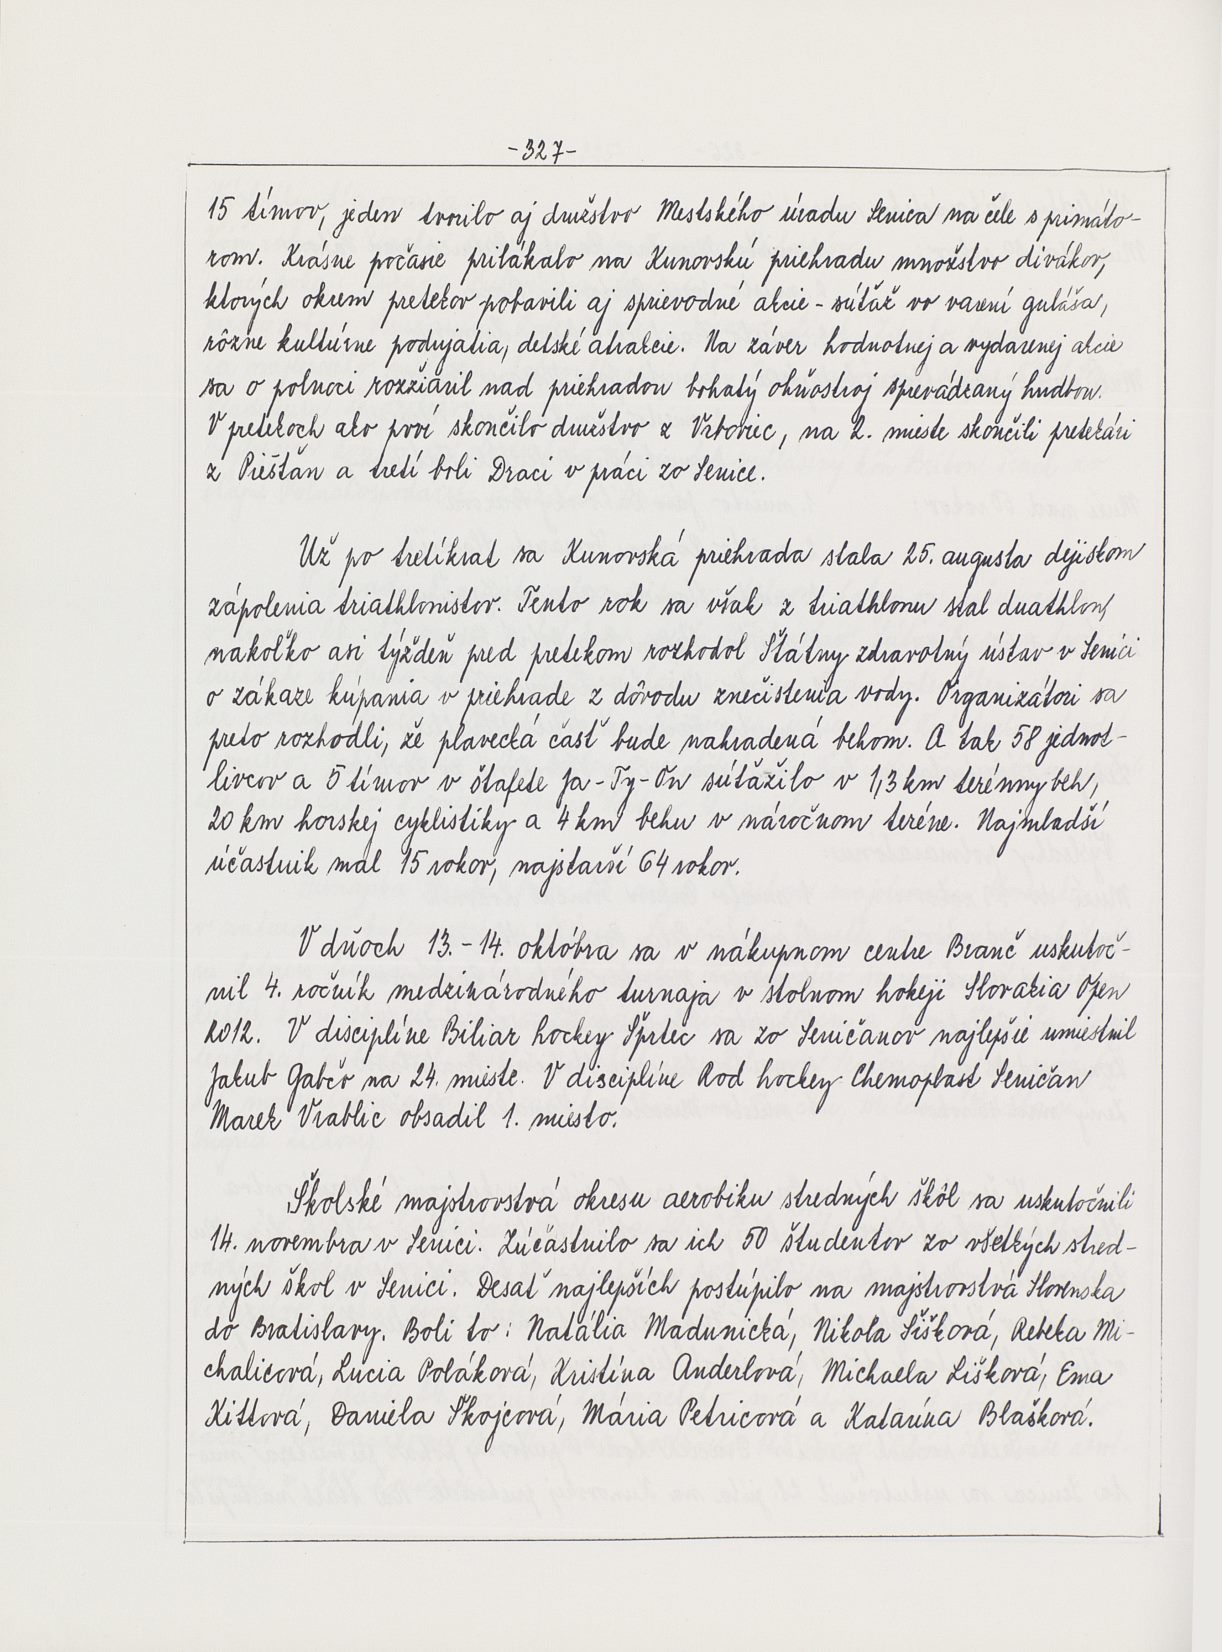 -327-
15 tímov, jeden tvorilo aj družstvo Mestského úradu Senica na čele s primáto-
rom. Krásne počasie prilákalo na Kunovskú priehradu množstvo divákov,
ktorých okrem pretekov pobavili aj sprievodné akcie - súťaž vo varení guláša,
rôzne kultúrne podujatia, detské atrakcie. Na záver hodnotnej a vydarenej akcie
sa o polnoci rozžiaril nad priehradou bohatý ohňostroj sprevádzaný hudbou.
V pretekoch ako prví skončilo družstvo z Vrboviec, na 2. mieste skončili pretekári
z Piešťan a tretí boli Draci v práci zo Senice.
Už po tretíkrat sa Kunovská priehrada stala 25. augusta dejiskom
zápolenia triathlonistov. Tento rok sa však z triathlonu stal duathlon,
nakoľko asi týždeň pred pretekom rozhodol Štátny zdravotný ústav v Senici
o zákaze kúpania v priehrade z dôvodu znečistenia vody. Organizátori sa
preto rozhodli, že plavecká časť bude nahradená behom. A tak 58 jednot-
livcov a 5 tímov v štafete Ja-Ty-On súťažilo v 1,3 km terénny beh,
20 km horskej cyklistiky a 4 km behu v náročnom teréne. Najmladší
účastník mal 15 rokov, najstarší 64 rokov.
V dňoch 13.-14. októbra sa v nákupnom centre Branč uskutoč-
nil 4. ročník medzinárodného turnaja v stolnom hokeji Slovakia Open
2012. V disciplíne Biliar hockey Šprtec sa zo Seničanov najlepšie umiestnil
Jakub Gabčo na 24. mieste. V disciplíne Rod hockey Chemoplast Seničan
Marek Vrablic obsadil 1. miesto.
Školské majstrovstvá okresu aerobiku stredných škôl sa uskutočnili
14. novembra v Senici. Zúčastnilo sa ich 50 študentov zo všetkých stred-
ných škol v Senici. Desať najlepších postúpilo na majstrovstvá Slovenska
do Bratislavy. Boli to: Natália Madunická, Nikola Šišková, Rebeka Mi-
chalicová, Lucia Poláková, Kristína Anderlová, Michaela Lišková, Ema
Kittová, Daniela Škojcová, Mária Petricová a Katarína Blašková.